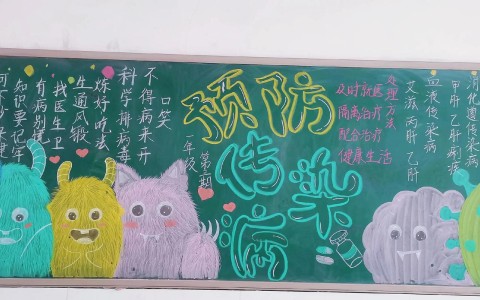 知识要记牢
有病别慌
找医生卫
生通风锻
炼好吃法
科学排病毒
不得病来开
口笑
一年级
预防
传染
病
处理方法
及时就医
隔离治疗
配合治疗
健康生活
消化道传染病
甲肝 乙肝 痢疾
血液传染病
艾滋 丙肝 乙肝